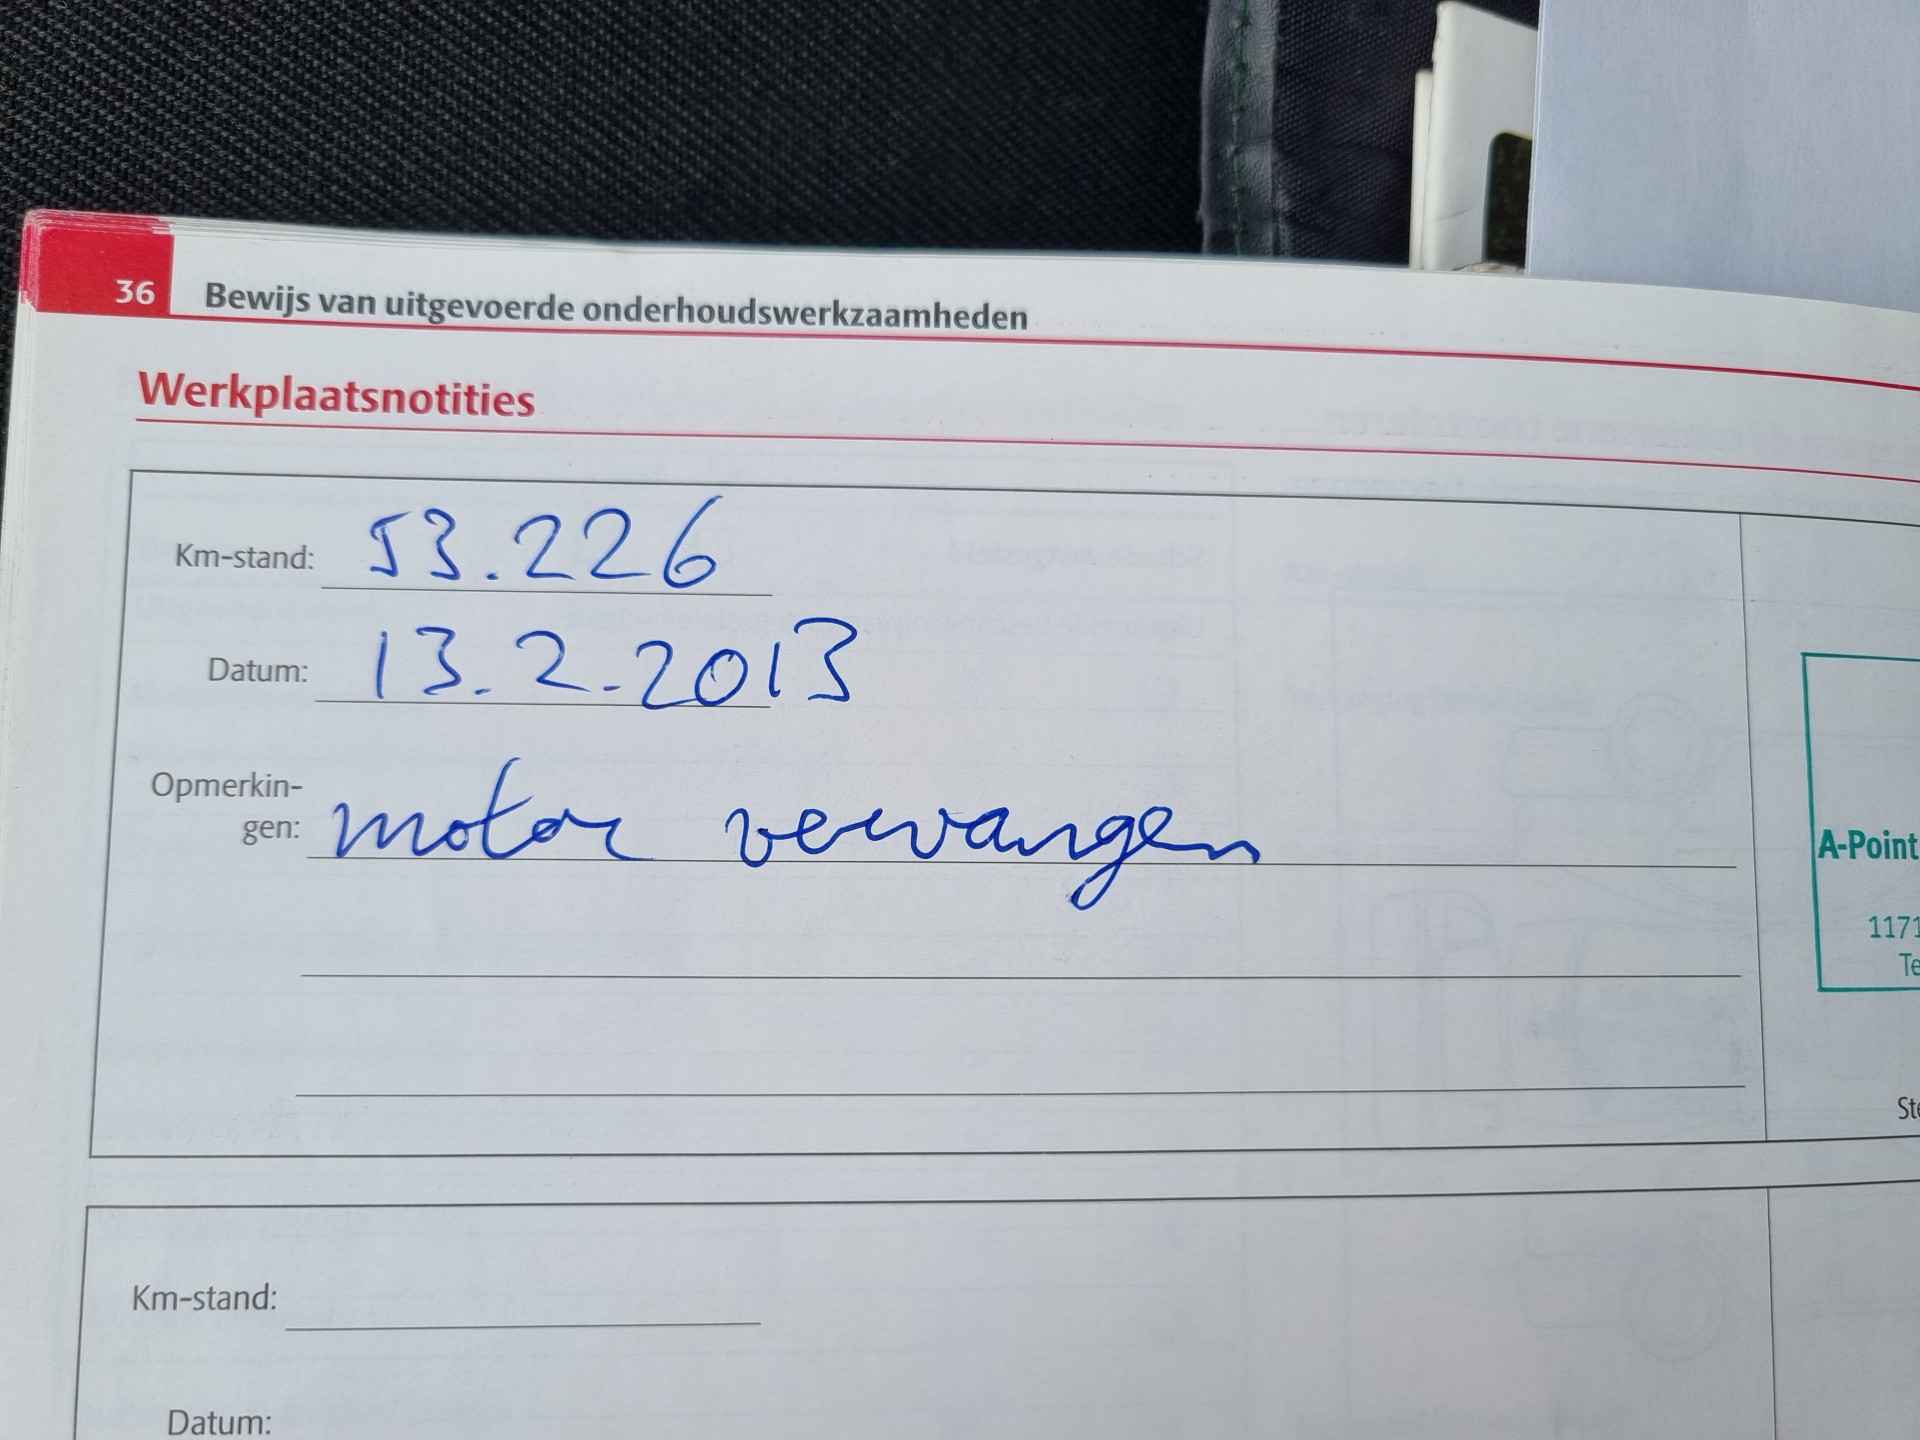 36 Bewijs van uitgevoerde onderhoudswerkzaamheden
Werkplaatsnotities
Km-stand: 53.226
Datum: 13.2.2013
Opmerkin-
gen: motor vervangen
A-Point
1171
Te
Ste
Km-stand:
Datum: